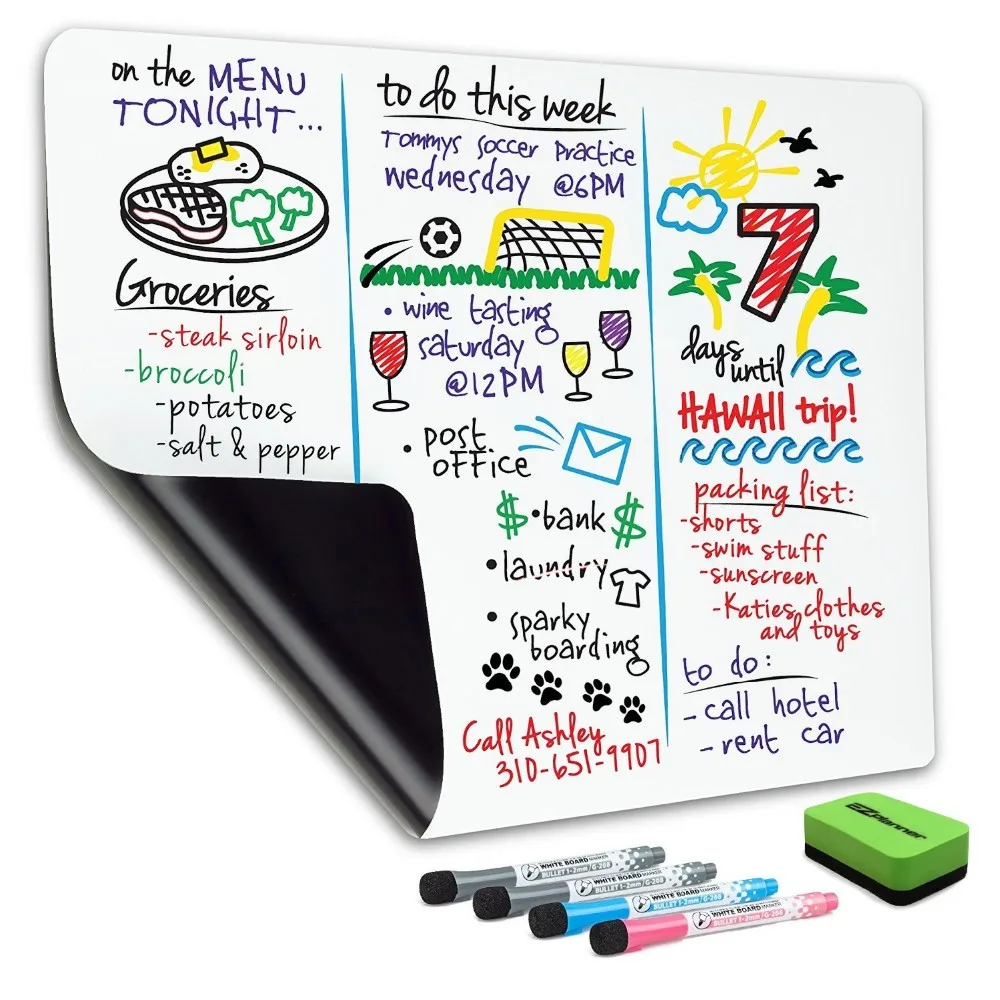 on the MENU
TONIGHT...
Groceries
-steak sirloin
-broccoli
-potatoes
-salt & pepper
to do this week
Tommys Soccer Practice
wednesday @6PM
• wine tasting
saturday
@12PM
• post
OFFICE
$ •bank $
• laundry
• sparky
boarding
Call Ashley
310-651-9907
7
days
until
HAWAII trip!
packing list:
-shorts
-swim stuff
-sunscreen
-Katies clothes
and toys
to do:
- call hotel
- rent car
EZplanner
WHITE BOARD MARKER
BULLET 1-2mm/G-208
WHITE BOARD MARKER
BULLET 1-2mm/G-208
WHITE BOARD MARKER
BULLET 1-2mm/G-208
WHITE BOARD MARKER
BULLET 1-2mm/G-208